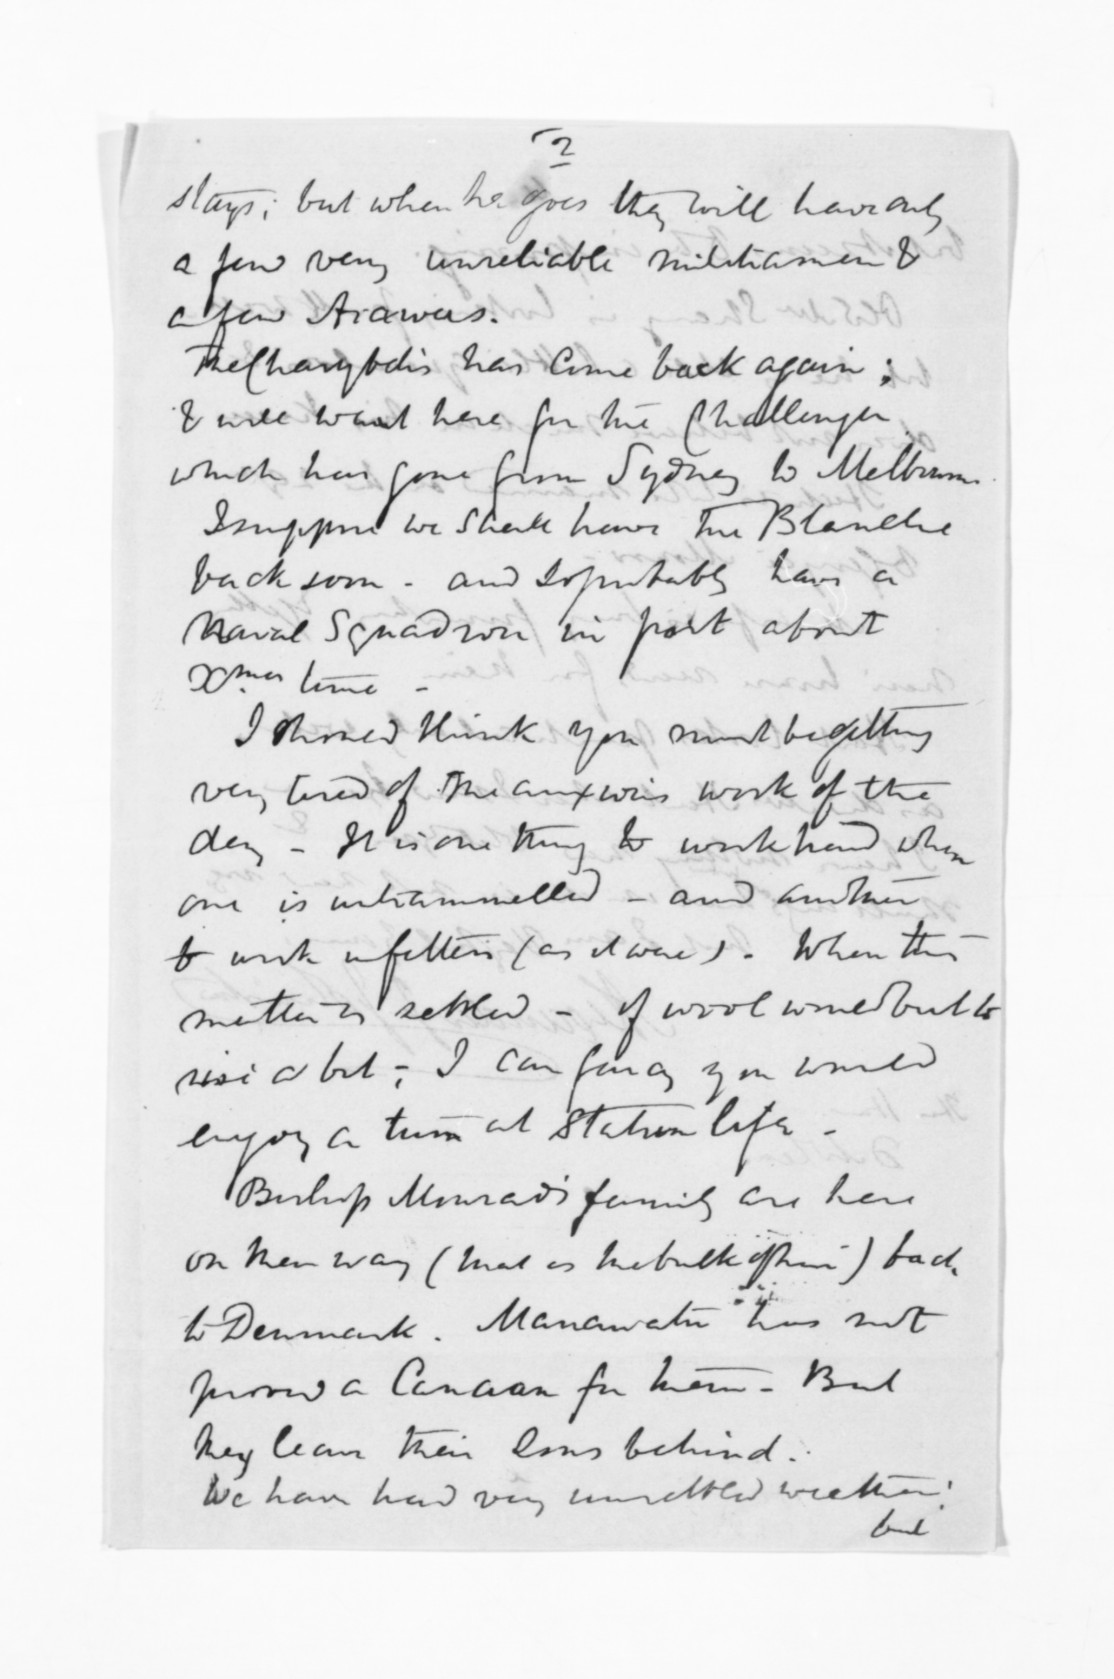 2
stays; but when he goes they will have only
a few very unreliable militiamen &
a few Arawas.
The Charybdis has come back again;
& will wait here for the Challenger
which has gone from Sydney to Melbourne.
I suppose we shall have the Blanche
back soon - and so probably have a
Naval Squadron in port about
Xmas time -
I should think you must be getting
very tired of the anxious work of the
day - It is one thing to work hard when
one is untrammelled - and another
to work in fetters (as it were). When this
matter is settled - if wool would but to
rise a bit -; I can fancy you would
enjoy a turn at Station life -
Bishop Monrad's family are here
on their way (that is the bulk of them) back
to Denmark. Manawatu has not
proved a Canaan for them - But
they leave their sons behind.
We have had very unsettled weather;
but